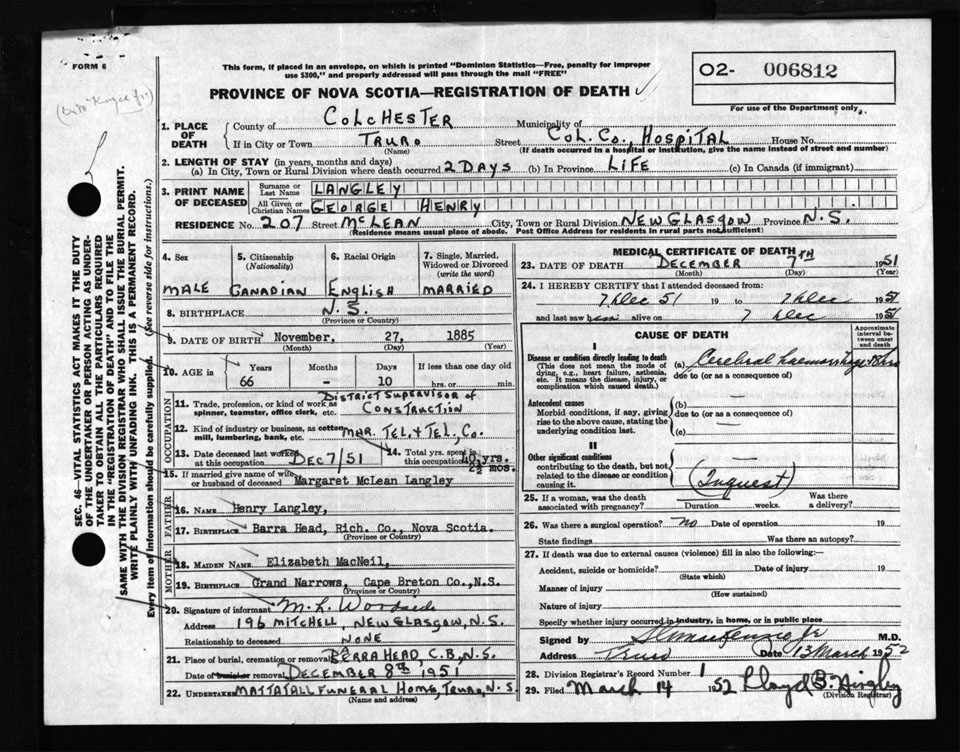 FORM 6
This form, if placed in an envelope, on which is printed "Dominion Statistics—Free, penalty for improper
use $300," and properly addressed will pass through the mail "FREE"
PROVINCE OF NOVA SCOTIA—REGISTRATION OF DEATH
02- 006812
For use of the Department only
SEC. 46—VITAL STATISTICS ACT MAKES IT THE DUTY
OF THE UNDERTAKER OR PERSON ACTING AS UNDER-
TAKER TO OBTAIN ALL THE PARTICULARS REQUIRED
IN THE "REGISTRATION OF DEATH" AND TO FILE THE
SAME WITH THE DIVISION REGISTRAR WHO SHALL ISSUE THE BURIAL PERMIT.
WRITE PLAINLY WITH UNFADING INK. THIS IS A PERMANENT RECORD.
Every item of information should be carefully supplied. (See reverse side for instructions.)
1. PLACE OF DEATH County of COLCHESTER Municipality of
If in City or Town TRURO Street COL. CO., HOSPITAL House No.
(Name) (If death occurred in a hospital or institution, give the name instead of street and number)
2. LENGTH OF STAY (in years, months and days)
(a) In City, Town or Rural Division where death occurred 2 DAYS (b) In Province LIFE (c) In Canada (if immigrant)
3. PRINT NAME OF DECEASED Surname or Last Name LANGLEY
All Given or Christian Names GEORGE HENRY
RESIDENCE No. 207 Street McLEAN City, Town or Rural Division NEW GLASGOW Province N.S.
(Residence means usual place of abode. Post Office Address for residents in rural parts not sufficient)
4. Sex 5. Citizenship (Nationality) 6. Racial Origin 7. Single, Married, Widowed or Divorced (write the word)
MALE CANADIAN ENGLISH MARRIED
8. BIRTHPLACE N.S.
(Province or Country)
9. DATE OF BIRTH November. 27, 1885
(Month) (Day) (Year)
10. AGE in Years Months Days If less than one day old
66 - 10 hrs. or min.
OCCUPATION
11. Trade, profession or kind of work as spinner, teamster, office clerk, etc. DISTRICT SUPERVISOR of CONSTRUCTIIN
12. Kind of industry or business, as cotton mill, lumbering, bank, etc. MAR. TEL. & TEL., Co.
13. Date deceased last worked at this occupation DEC 7/51 14. Total yrs. spent in this occupation 40 yrs. 2½ mos.
15. If married give name of wife or husband of deceased Margaret McLean Langley
FATHER
16. NAME Henry Langley,
17. BIRTHPLACE Barra Head, Rich. Co., Nova Scotia.
(Province or Country)
MOTHER
18. MAIDEN NAME Elizabeth MacNeil,
19. BIRTHPLACE Grand Narrows, Cape Breton Co., N.S.
(Province or Country)
20. Signature of informant M. L.
Address 196 MITCHELL, NEW GLASGOW, N.S.
Relationship to deceased NONE
21. Place of burial, cremation or removal BERRA HEAD, C.B., N.S.
Date of burial or removal DECEMBER 8th, 1951
22. UNDERTAKER MATTATALL FUNERAL HOME, TRURO, N.S.
(Name and address)
MEDICAL CERTIFICATE OF DEATH
23. DATE OF DEATH DECEMBER 7TH 1951
(Month) (Day) (Year)
24. I HEREBY CERTIFY that I attended deceased from:
7 Dec 51 19 to 7 Dec 1951
and last saw him alive on 7 Dec 1951
CAUSE OF DEATH
Approximate interval between onset and death
I
Disease or condition directly leading to death
(This does not mean the mode of dying, e.g., heart failure, asthenia, etc. It means the disease, injury, or complication which caused death.)
(a) Cerebral haemorrhage 48 hrs
due to (or as a consequence of)
Antecedent causes
Morbid conditions, if any, giving rise to the above cause, stating the underlying condition last.
(b) —
due to (or as a consequence of)
(c) —
II
Other significant conditions
contributing to the death, but not related to the disease or condition causing it.
—
(Inquest)
25. If a woman, was the death associated with pregnancy? Duration weeks. Was there a delivery?
26. Was there a surgical operation? no Date of operation 19
State findings Was there an autopsy?
27. If death was due to external causes (violence) fill in also the following:—
Accident, suicide or homicide? Date of injury 19
(State which)
Manner of injury
(How sustained)
Nature of injury
Specify whether injury occurred in industry, in home, or in public place
Signed by MacKenzie Jr M.D.
Address Truro Date 13 March 1952
28. Division Registrar's Record Number 1
29. Filed March 14 1952 Lloyd B.
(Division Registrar)